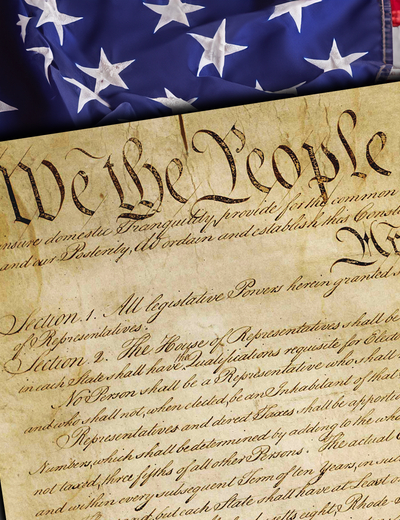 We the People
insure domestic Tranquility, provide for the common
and our Posterity, do ordain and establish this Const
Section. 1. All legislative Powers herein granted
of Representatives.
Section. 2. The House of Representatives shall be
in each State shall have the Qualifications requisite for Elec
No Person shall be a Representative who shall
and who shall not, when elected, be an Inhabitant of that
Representatives and direct Taxes shall be apporti
Numbers, which shall be determined by adding to the who
not taxed, three fifths of all other Persons. The actual
and within every subsequent Term of ten Years, in suc
but each State shall have at Least
eight, Rhode